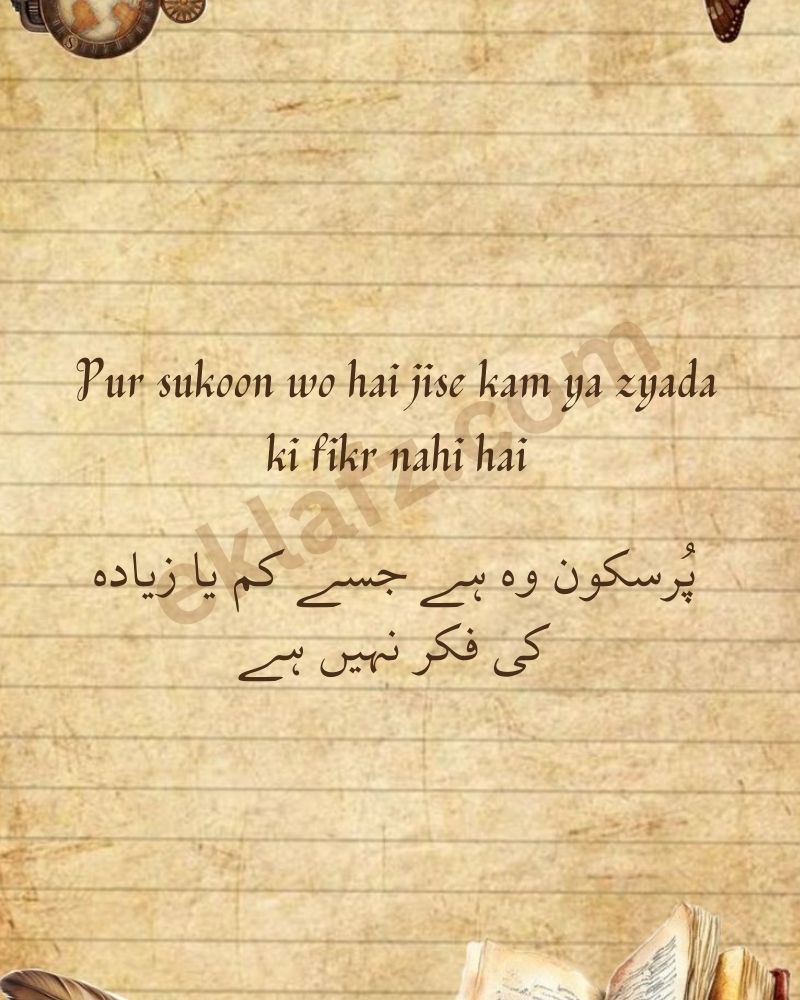 Pur sukoon wo hai jise kam ya zyada
ki fikr nahi hai
پُرسکون وہ ہے جسے کم یا زیادہ
کی فکر نہیں ہے
eklafz.com